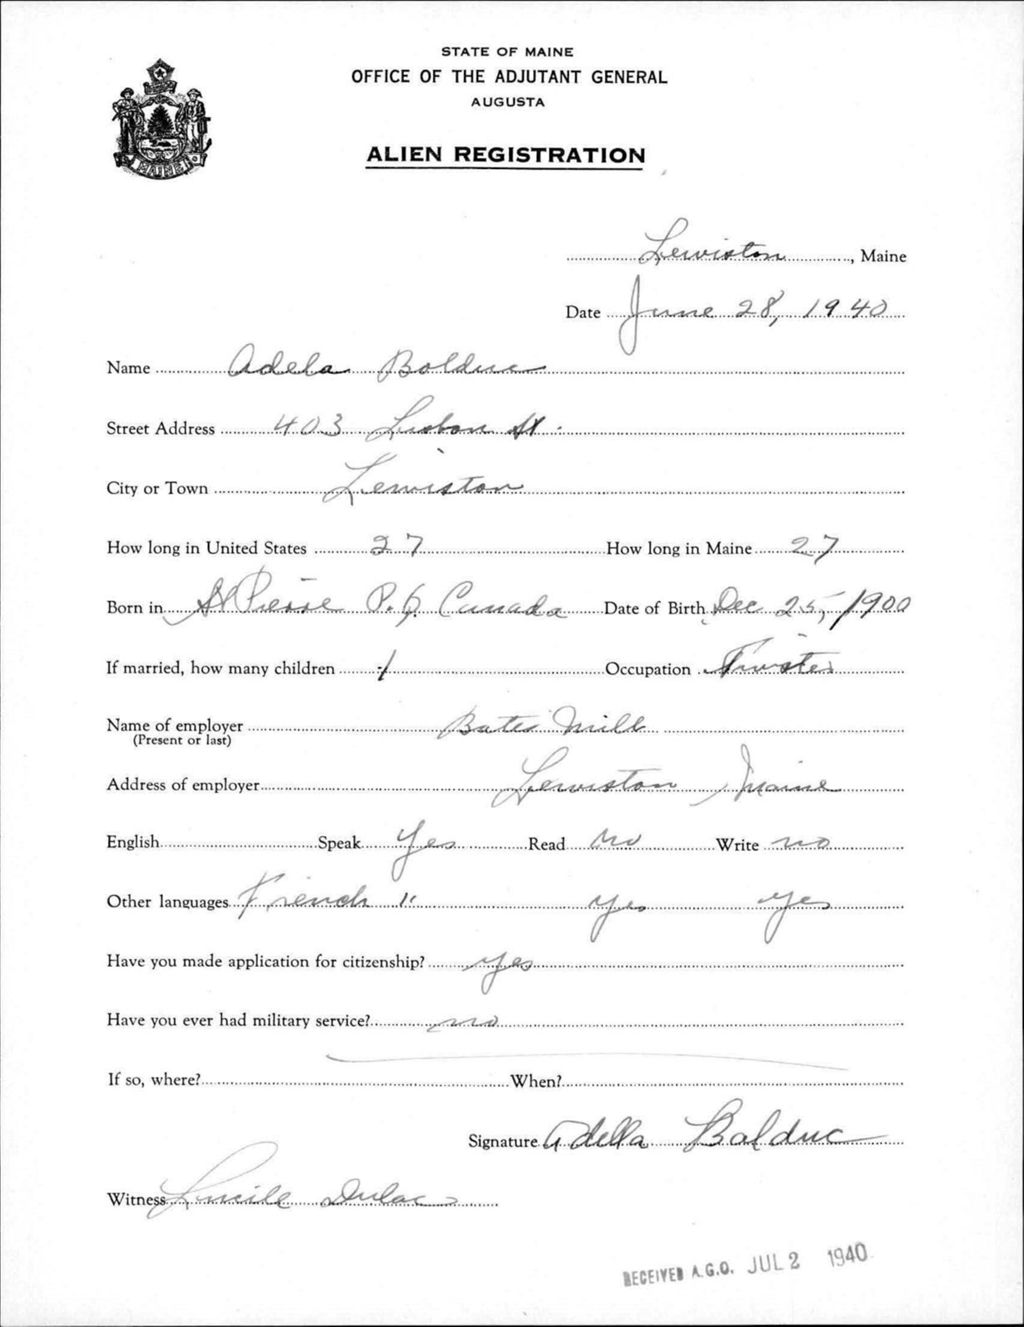 STATE OF MAINE
OFFICE OF THE ADJUTANT GENERAL
AUGUSTA
ALIEN REGISTRATION
MAINE
Lewiston, Maine
Date June 28, 1940
Name Adela Bolduc
Street Address 403 Lisbon St.
City or Town Lewiston
How long in United States 27 How long in Maine 27
Born in St Pierre P.Q. Canada Date of Birth Dec 25, 1900
If married, how many children 1 Occupation Twister
Name of employer Bates Mill
(Present or last)
Address of employer Lewiston, Maine
English Speak Yes Read no Write no
Other languages French " yes yes
Have you made application for citizenship? yes
Have you ever had military service? no
If so, where? When?
Signature Adella Balduc
Witness Lucile Dulac
RECEIVED A.G.O. JUL 2 1940